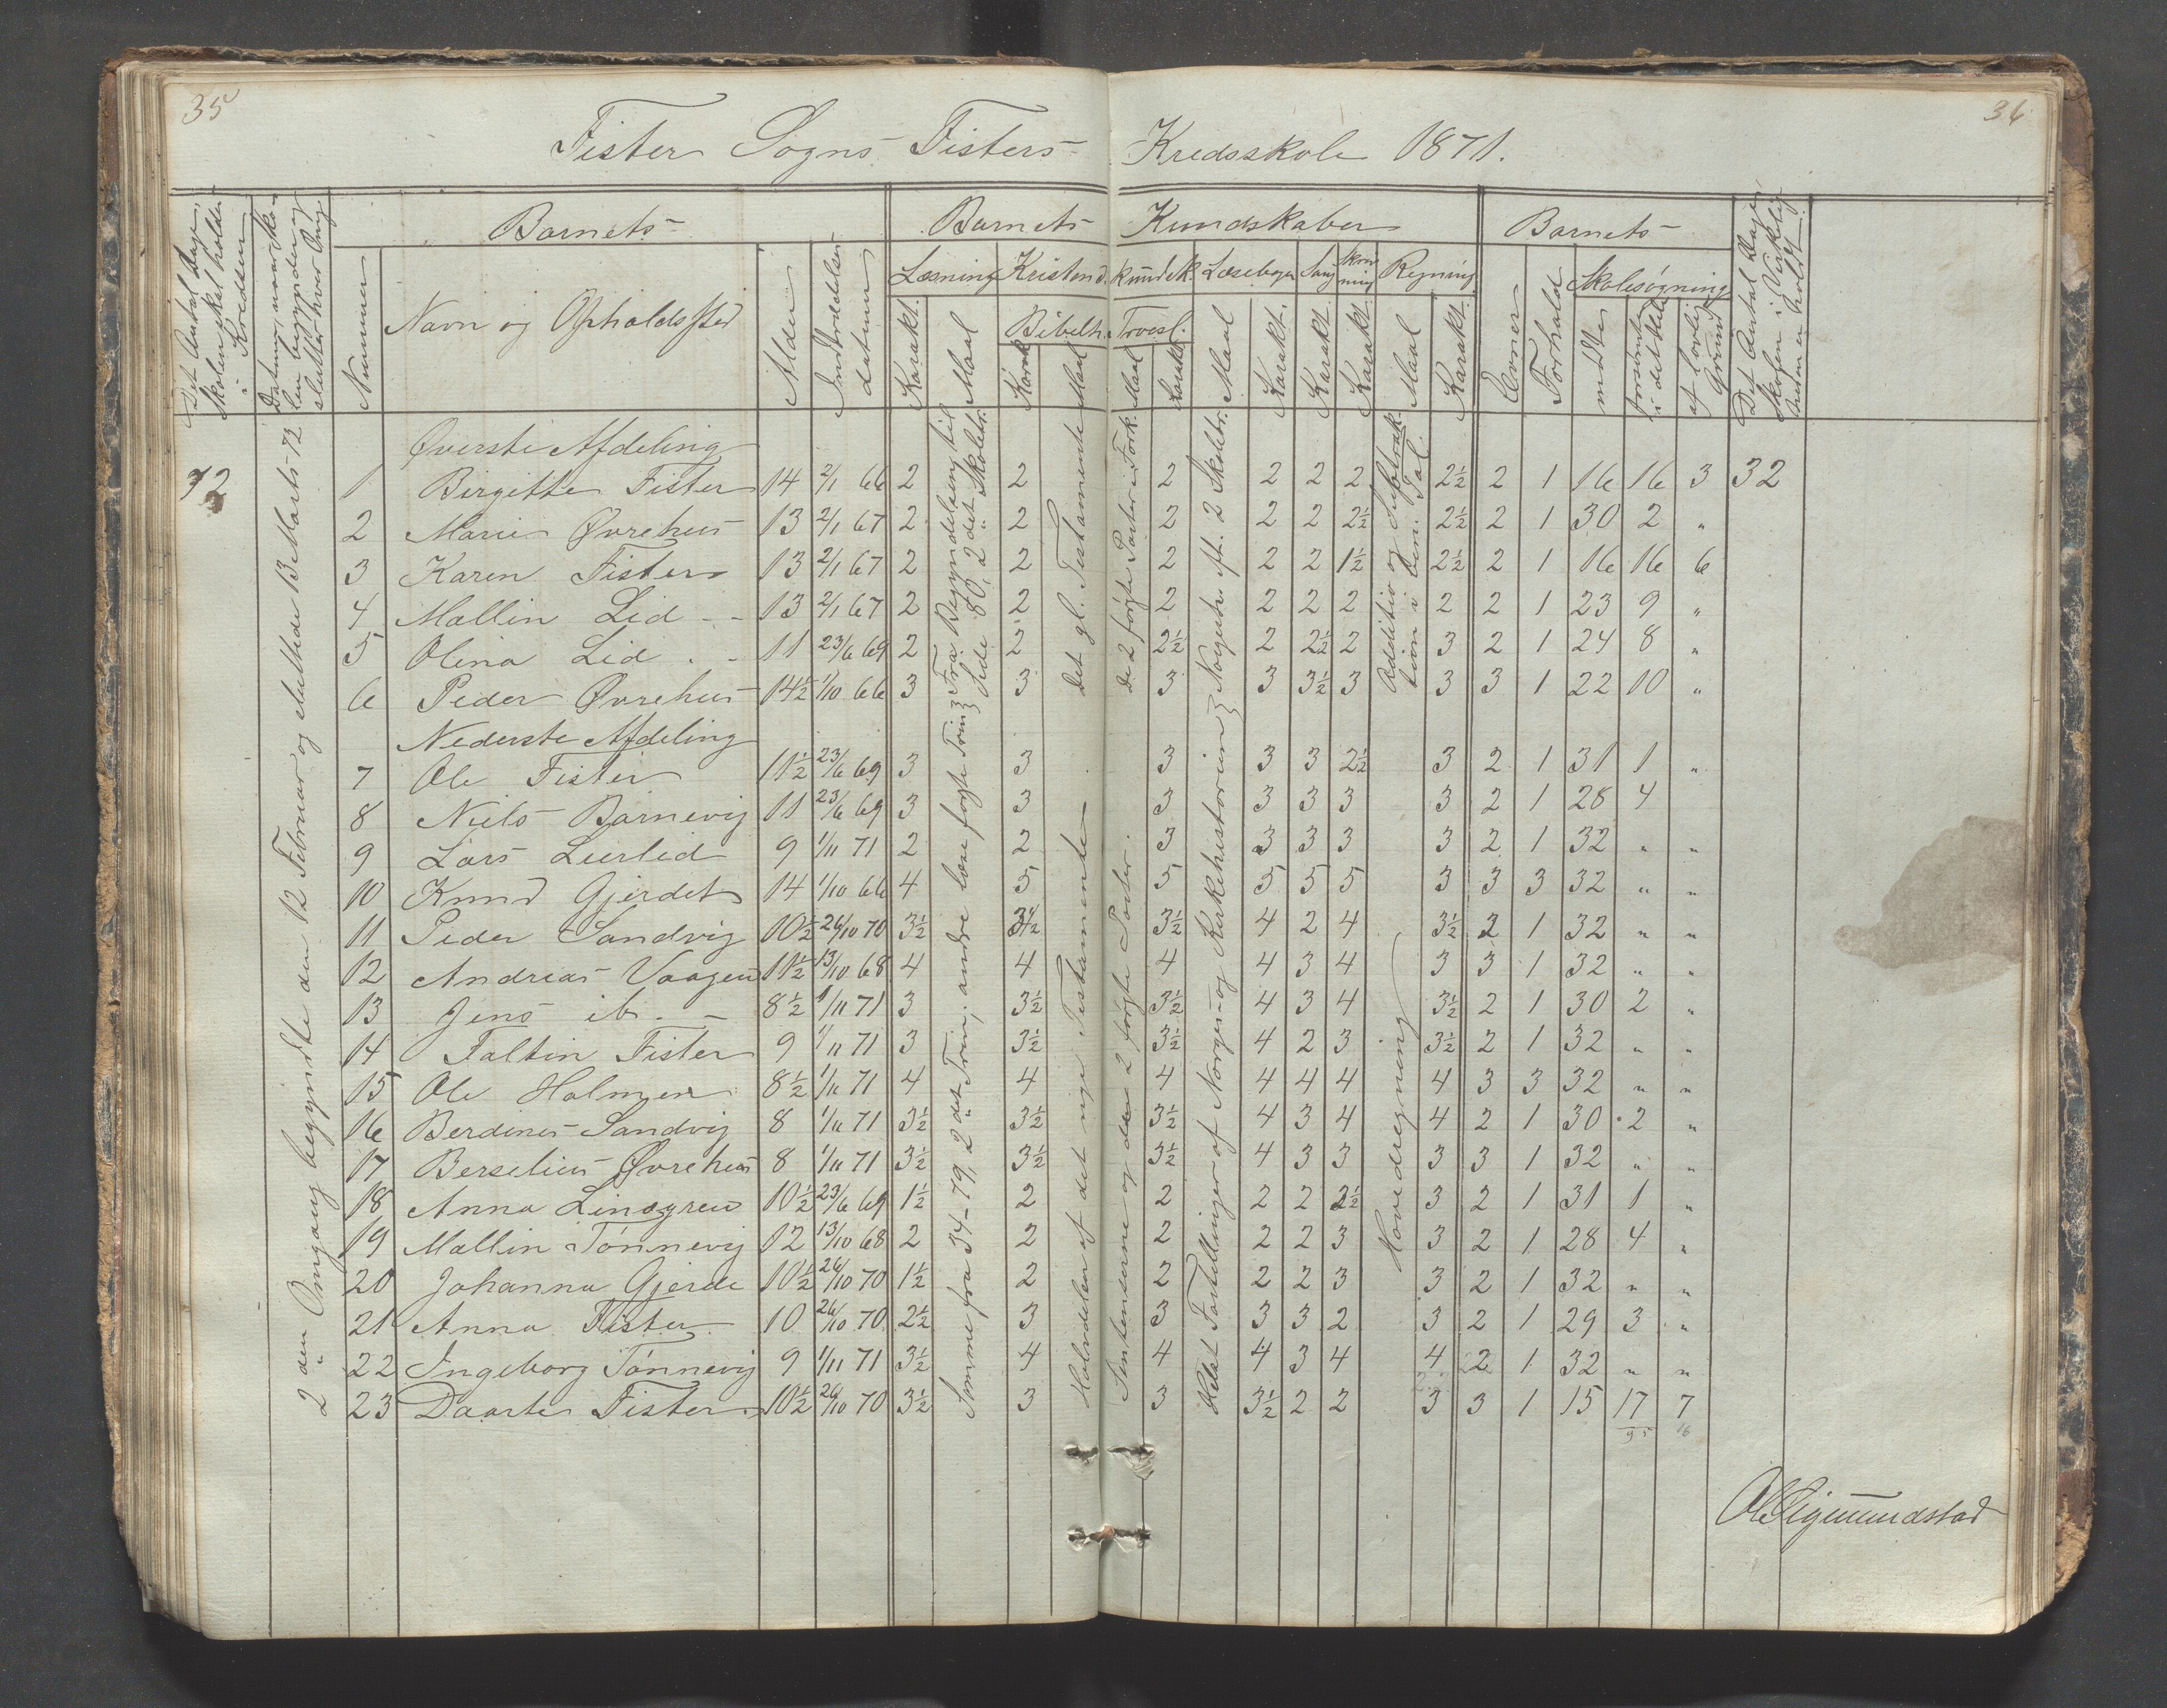 35
36
Fister Sogns Fisters Kredsskole 1871.
Det Antal Dage, Skolen skal holdes i Kredsen
Datum, naar Skolen begynder og slutter hver Omg.
Nummer
Barnets
Navn og Opholdssted
Alder
Indtrædelsesdatum
Barnets Kundskaber
Læsning
Karakt.
Maal
Kristend. kundsk.
Bibelh.
Karakt.
Maal
Troesl.
Maal
Karakt.
Læsebogen
Maal
Karakt.
Sang
Karakt.
Skrivning
Karakt.
Regning
Maal
Karakt.
Barnets
Evner
Forhold
Skolesøgning
mødte
forsømte i det Hele
af lovlig Grund
Det Antal Dage, Skolen i Virkeligheden er holdt
Øverste Afdeling
32 1 Birgitte Fister 14 2/1 66 2 2 2 2 2 2 2½ 2 1 16 16 3 32
2 Marie Øvrehus 13 2/1 67 2 2 2 2 2 2½ 2½ 2 1 30 2 "
3 Karen Fister 13 2/1 67 2 2 2 2 2 1½ 2½ 2 1 16 16 6
4 Mallin Lid - - 13 2/1 67 2 2 2 2 2 2 2 2 1 23 9 "
5 Olina Lid . - 11 23/6 69 2 2 2½ 2 2½ 2 3 2 1 24 8 "
6 Peder Øvrehus 14½ 1/10 66 3 3 3 3 3½ 3 3 3 1 22 10 "
Nederste Afdeling
7 Ole Fister 11½ 23/6 69 3 3 3 3 3 2½ 3 2 1 31 1 "
8 Niels Barnevig 11 23/6 69 3 3 3 3 3 3 3 2 1 28 4
9 Lars Leerlid 9 1/11 71 2 2 3 3 3 3 3 2 1 32 " "
10 Knud Gjerdet 14 1/10 66 4 5 5 5 5 5 3 3 3 32 " "
11 Peder Sandvig 10½ 26/10 70 3½ 3½ 3½ 4 2 4 3½ 2 1 32 " "
12 Andreas Vaagen 11½ 13/10 68 4 4 4 4 3 4 3 3 1 32 " "
13 Jens ib. - 8½ 1/11 71 3 3½ 3½ 4 3 4 3½ 2 1 30 2 "
14 Faltin Fister 9 1/11 71 3 3½ 3½ 4 2 3 3½ 2 1 32 " "
15 Ole Holmen 8½ 1/11 71 4 4 4 4 4 4 4 3 3 32 " "
16 Berdines Sandvig 8 1/11 71 3½ 3½ 3½ 4 3 4 4 2 1 30 2 "
17 Berselius Øvrehus 8 1/11 71 3½ 3½ 3½ 4 3 3 3 3 1 32 " "
18 Anna Lindgren 10½ 23/6 69 1½ 2 2 2 2 2½ 3 2 1 31 1 "
19 Mallin Tønnevig 12 13/10 68 2 2 2 2 2 3 3 2 1 28 4 "
20 Johanna Gjerde 10½ 26/10 70 1½ 2 2 2 2 3 3 2 1 32 " "
21 Anna Fister 10 26/10 70 2½ 3 3 3 3 2 3 2 1 29 3 "
22 Ingeborg Tønnevig 9 1/11 71 3½ 4 4 4 3 4 4 2 1 32 " "
23 Daarte Fister 10½ 26/10 70 3½ 3 3 3½ 2 2 3 3 1 15 17 7
95 16
2den Omgang begyndte den 12 Februar og sluttede 13 Marts 72
Fra Begyndelsen til Side 80, 2det Skoletr.
Somme fra 34-79, 2det Trin; andre læse første Trin
Det gl. Testamente
Halvdelen af det nye Testamente
De 2 første Parter i Fork.
Sentenserne og de 2 første Parter.
Norgesh. ft. 2 Skoletr.
Helst Fortellinger af Norges- og Kirkehistorien
Addition og Subtraktion i ben. Tal.
Hovedregning
Ol. Sigmundstad